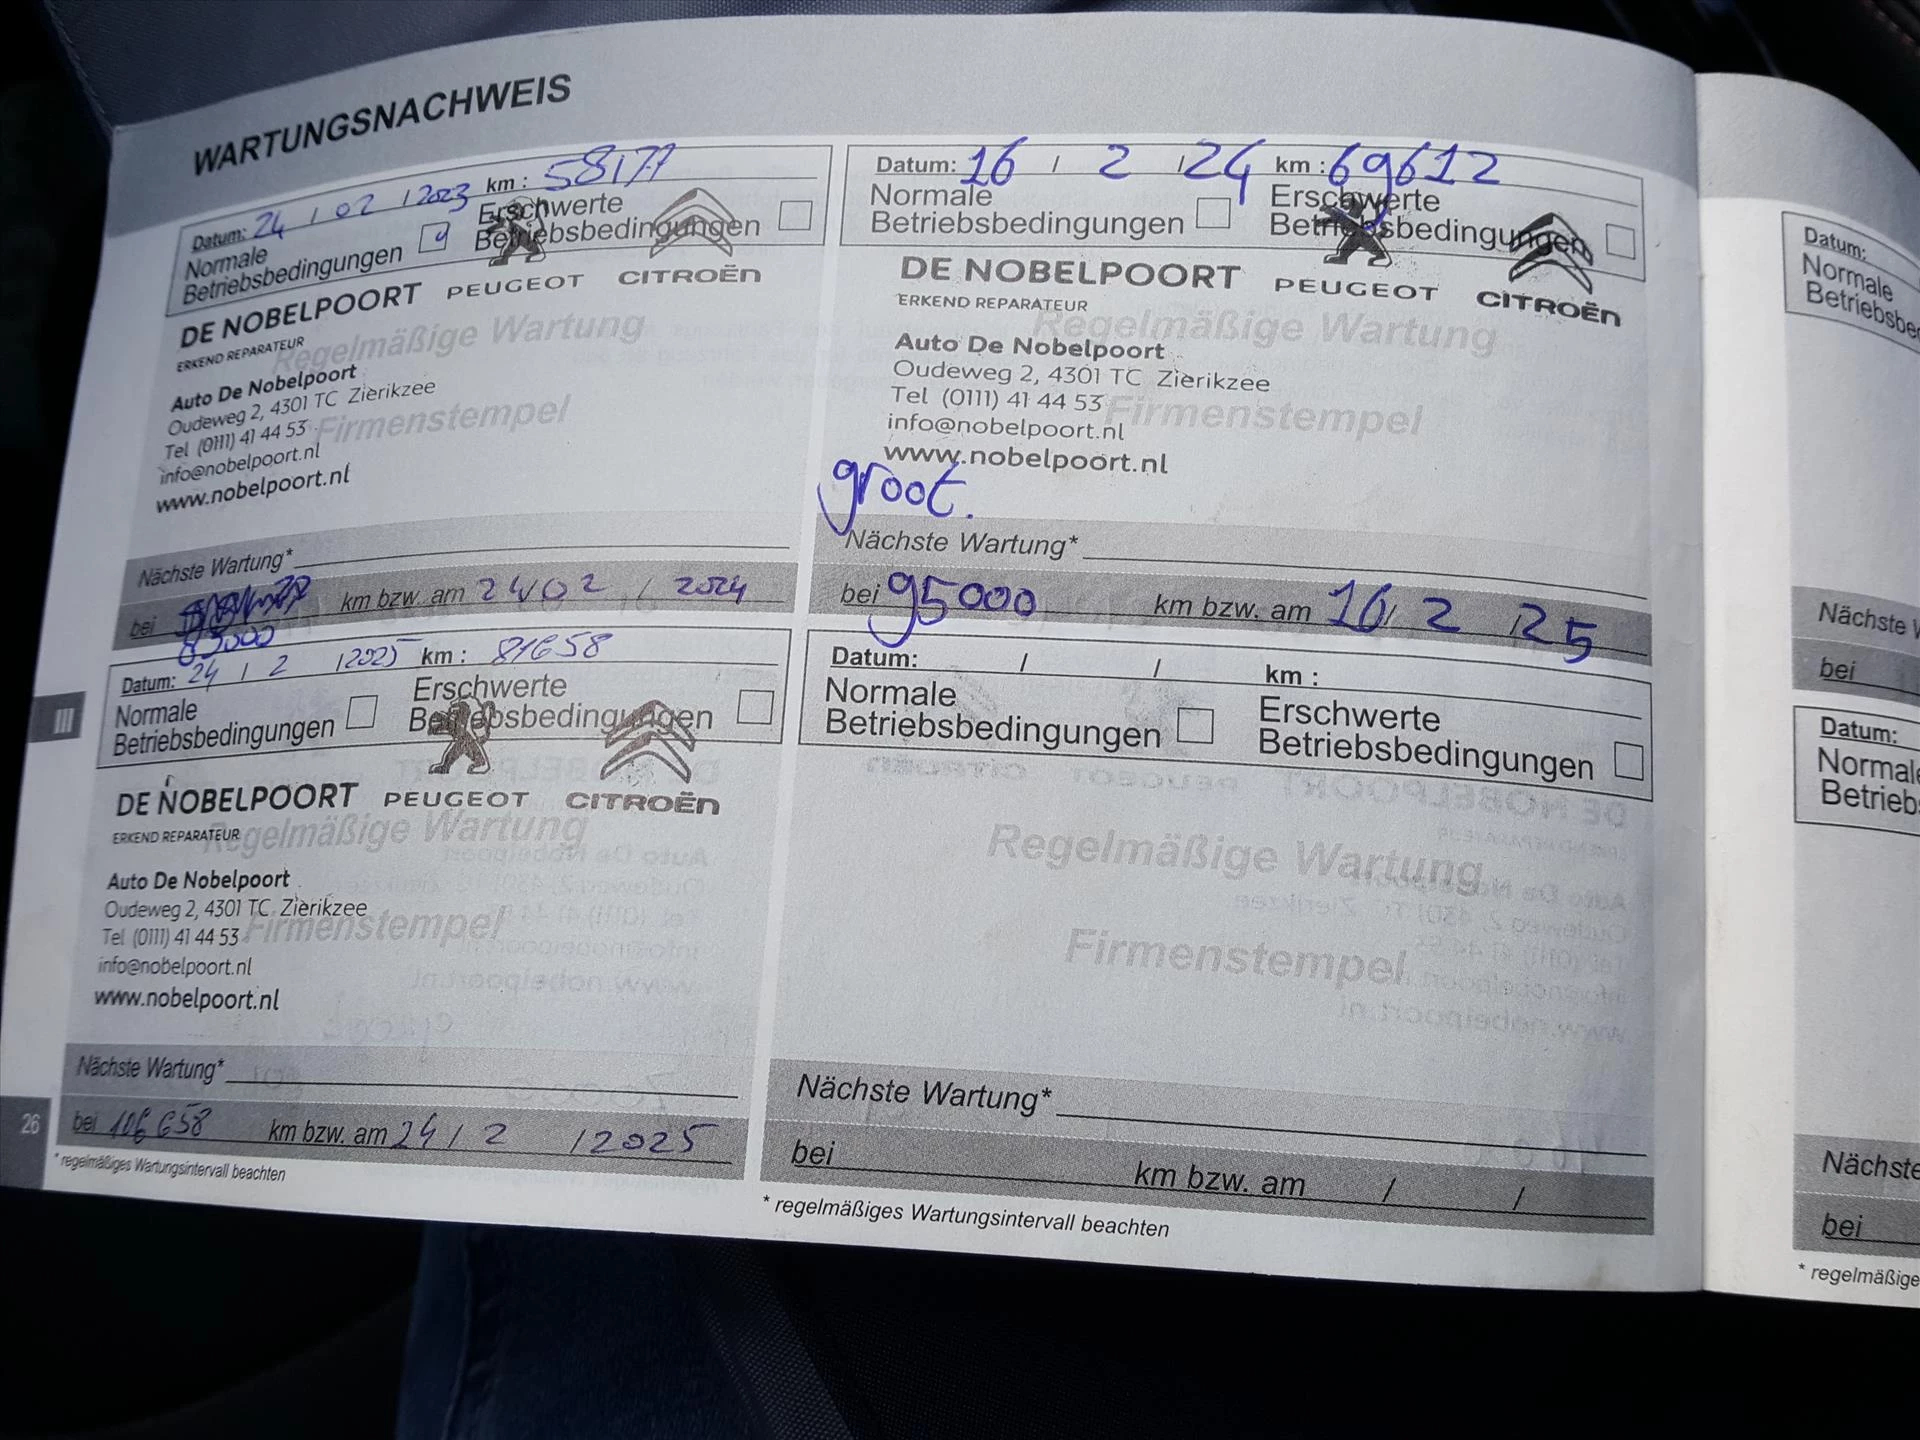 WARTUNGSNACHWEIS
Datum: 24 / 02 / 2023 km : 58177
Normale
Betriebsbedingungen
Erschwerte
Betriebsbedingungen
DE NOBELPOORT PEUGEOT CITROËN
ERKEND REPARATEUR
Regelmäßige Wartung
Auto De Nobelpoort
Oudeweg 2, 4301 TC Zierikzee
Firmenstempel
Tel (0111) 41 44 53
info@nobelpoort.nl
www.nobelpoort.nl
Nächste Wartung*
bei 83000 km bzw. am 24/02 / 2024
Datum: 16 / 2 / 24 km : 69612
Normale
Betriebsbedingungen
Erschwerte
Betriebsbedingungen
DE NOBELPOORT PEUGEOT CITROËN
ERKEND REPARATEUR
Regelmäßige Wartung
Auto De Nobelpoort
Oudeweg 2, 4301 TC Zierikzee
Tel (0111) 41 44 53
Firmenstempel
info@nobelpoort.nl
www.nobelpoort.nl
groot.
Nächste Wartung*
bei 95000 km bzw. am 16/ 2 / 25
Datum: 24 / 2 / 2025 km : 81658
Normale
Betriebsbedingungen
Erschwerte
Betriebsbedingungen
DE NOBELPOORT PEUGEOT CITROËN
ERKEND REPARATEUR
Regelmäßige Wartung
Auto De Nobelpoort
Oudeweg 2, 4301 TC Zierikzee
Firmenstempel
Tel (0111) 41 44 53
info@nobelpoort.nl
www.nobelpoort.nl
Nächste Wartung*
bei 106658 km bzw. am 24 / 2 / 2025
* regelmäßiges Wartungsintervall beachten
Datum: / / km :
Normale
Betriebsbedingungen
Erschwerte
Betriebsbedingungen
Regelmäßige Wartung
Firmenstempel
Nächste Wartung*
bei km bzw. am / /
* regelmäßiges Wartungsintervall beachten
III
26
Datum:
Normale
Betriebsbe
Nächste W
bei
Datum:
Normale
Betriebs
Nächste
bei
* regelmäßige